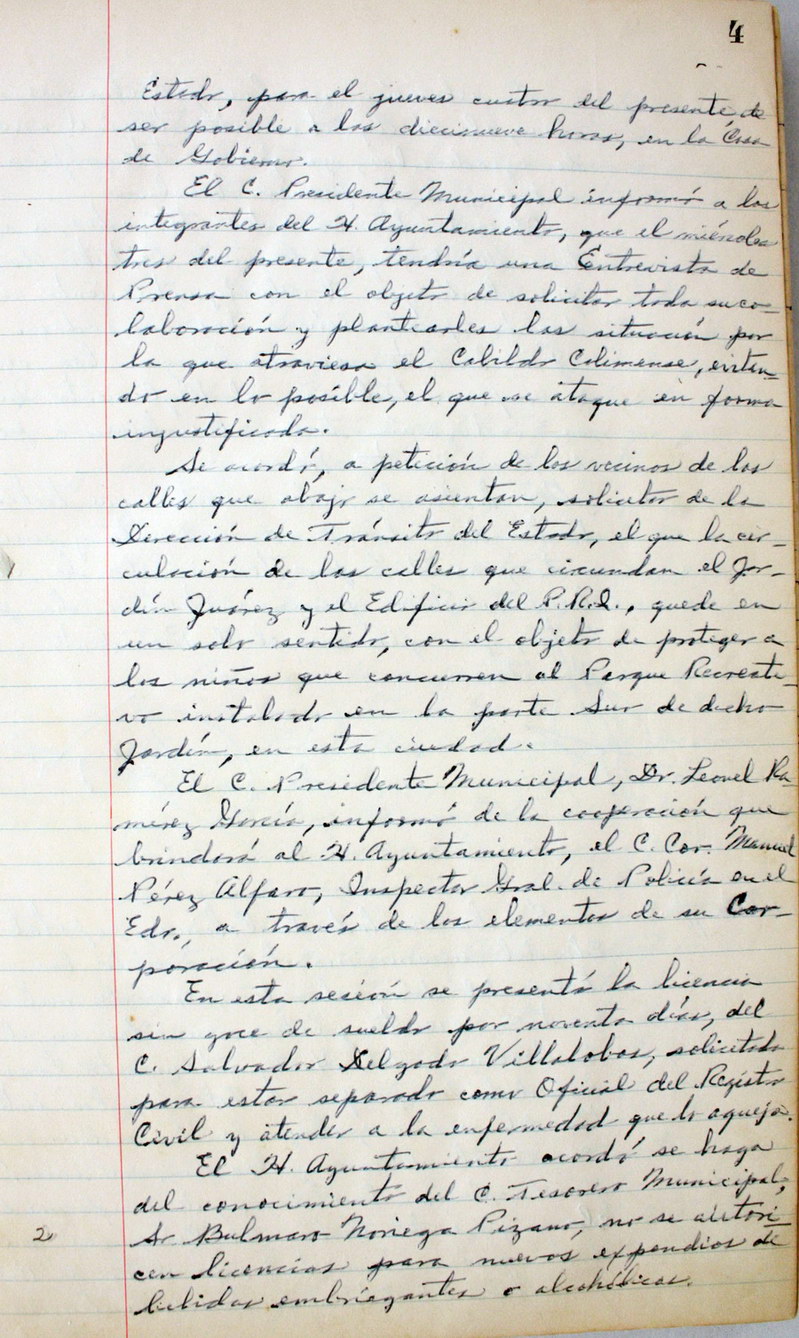 4
Estado, para el jueves cuatro del presente, de
ser posible a las diecinueve horas, en la Casa
de Gobierno.
El C. Presidente Municipal informó a los
integrantes del H. Ayuntamiento, que el miércoles
tres del presente, tendría una Entrevista de
Prensa con el objeto de solicitar toda su co-
laboración y plantearles las situación por
la que atraviesa el Cabildo Colimense, evitan-
do en lo posible, el que se ataque en forma
injustificada.
Se acordó, a petición de los vecinos de las
calles que abajo se asientan, solicitar de la
Dirección de Tránsito del Estado, el que la cir-
culación de las calles que circundan el Jar-
dín Juárez y el Edificio del P.R.I., quede en
un solo sentido, con el objeto de proteger a
los niños que concurren al Parque Recreati-
vo instalado en la parte Sur de dicho
Jardín, en esta ciudad.
El C. Presidente Municipal, Dr. Leonel Ra-
mírez García, informó de la cooperación que
brindará al H. Ayuntamiento, el C. Cor. Manuel
Pérez Alfaro, Inspector Gral. de Policía en el
Edo., a través de los elementos de su Cor-
poración.
En esta sesión se presentó la licencia
sin goce de sueldo por noventa días, del
C. Salvador Delgado Villalobos, solicitada
para estar separado como Oficial del Registro
Civil y atender a la enfermedad que lo aqueja.
El H. Ayuntamiento acordó se haga
del conocimiento del C. Tesorero Municipal,
Sr. Bulmaro Noriega Pizano, no se autori-
2
cen licencias para nuevos expendios de
bebidas embriagantes o alcohólicas.